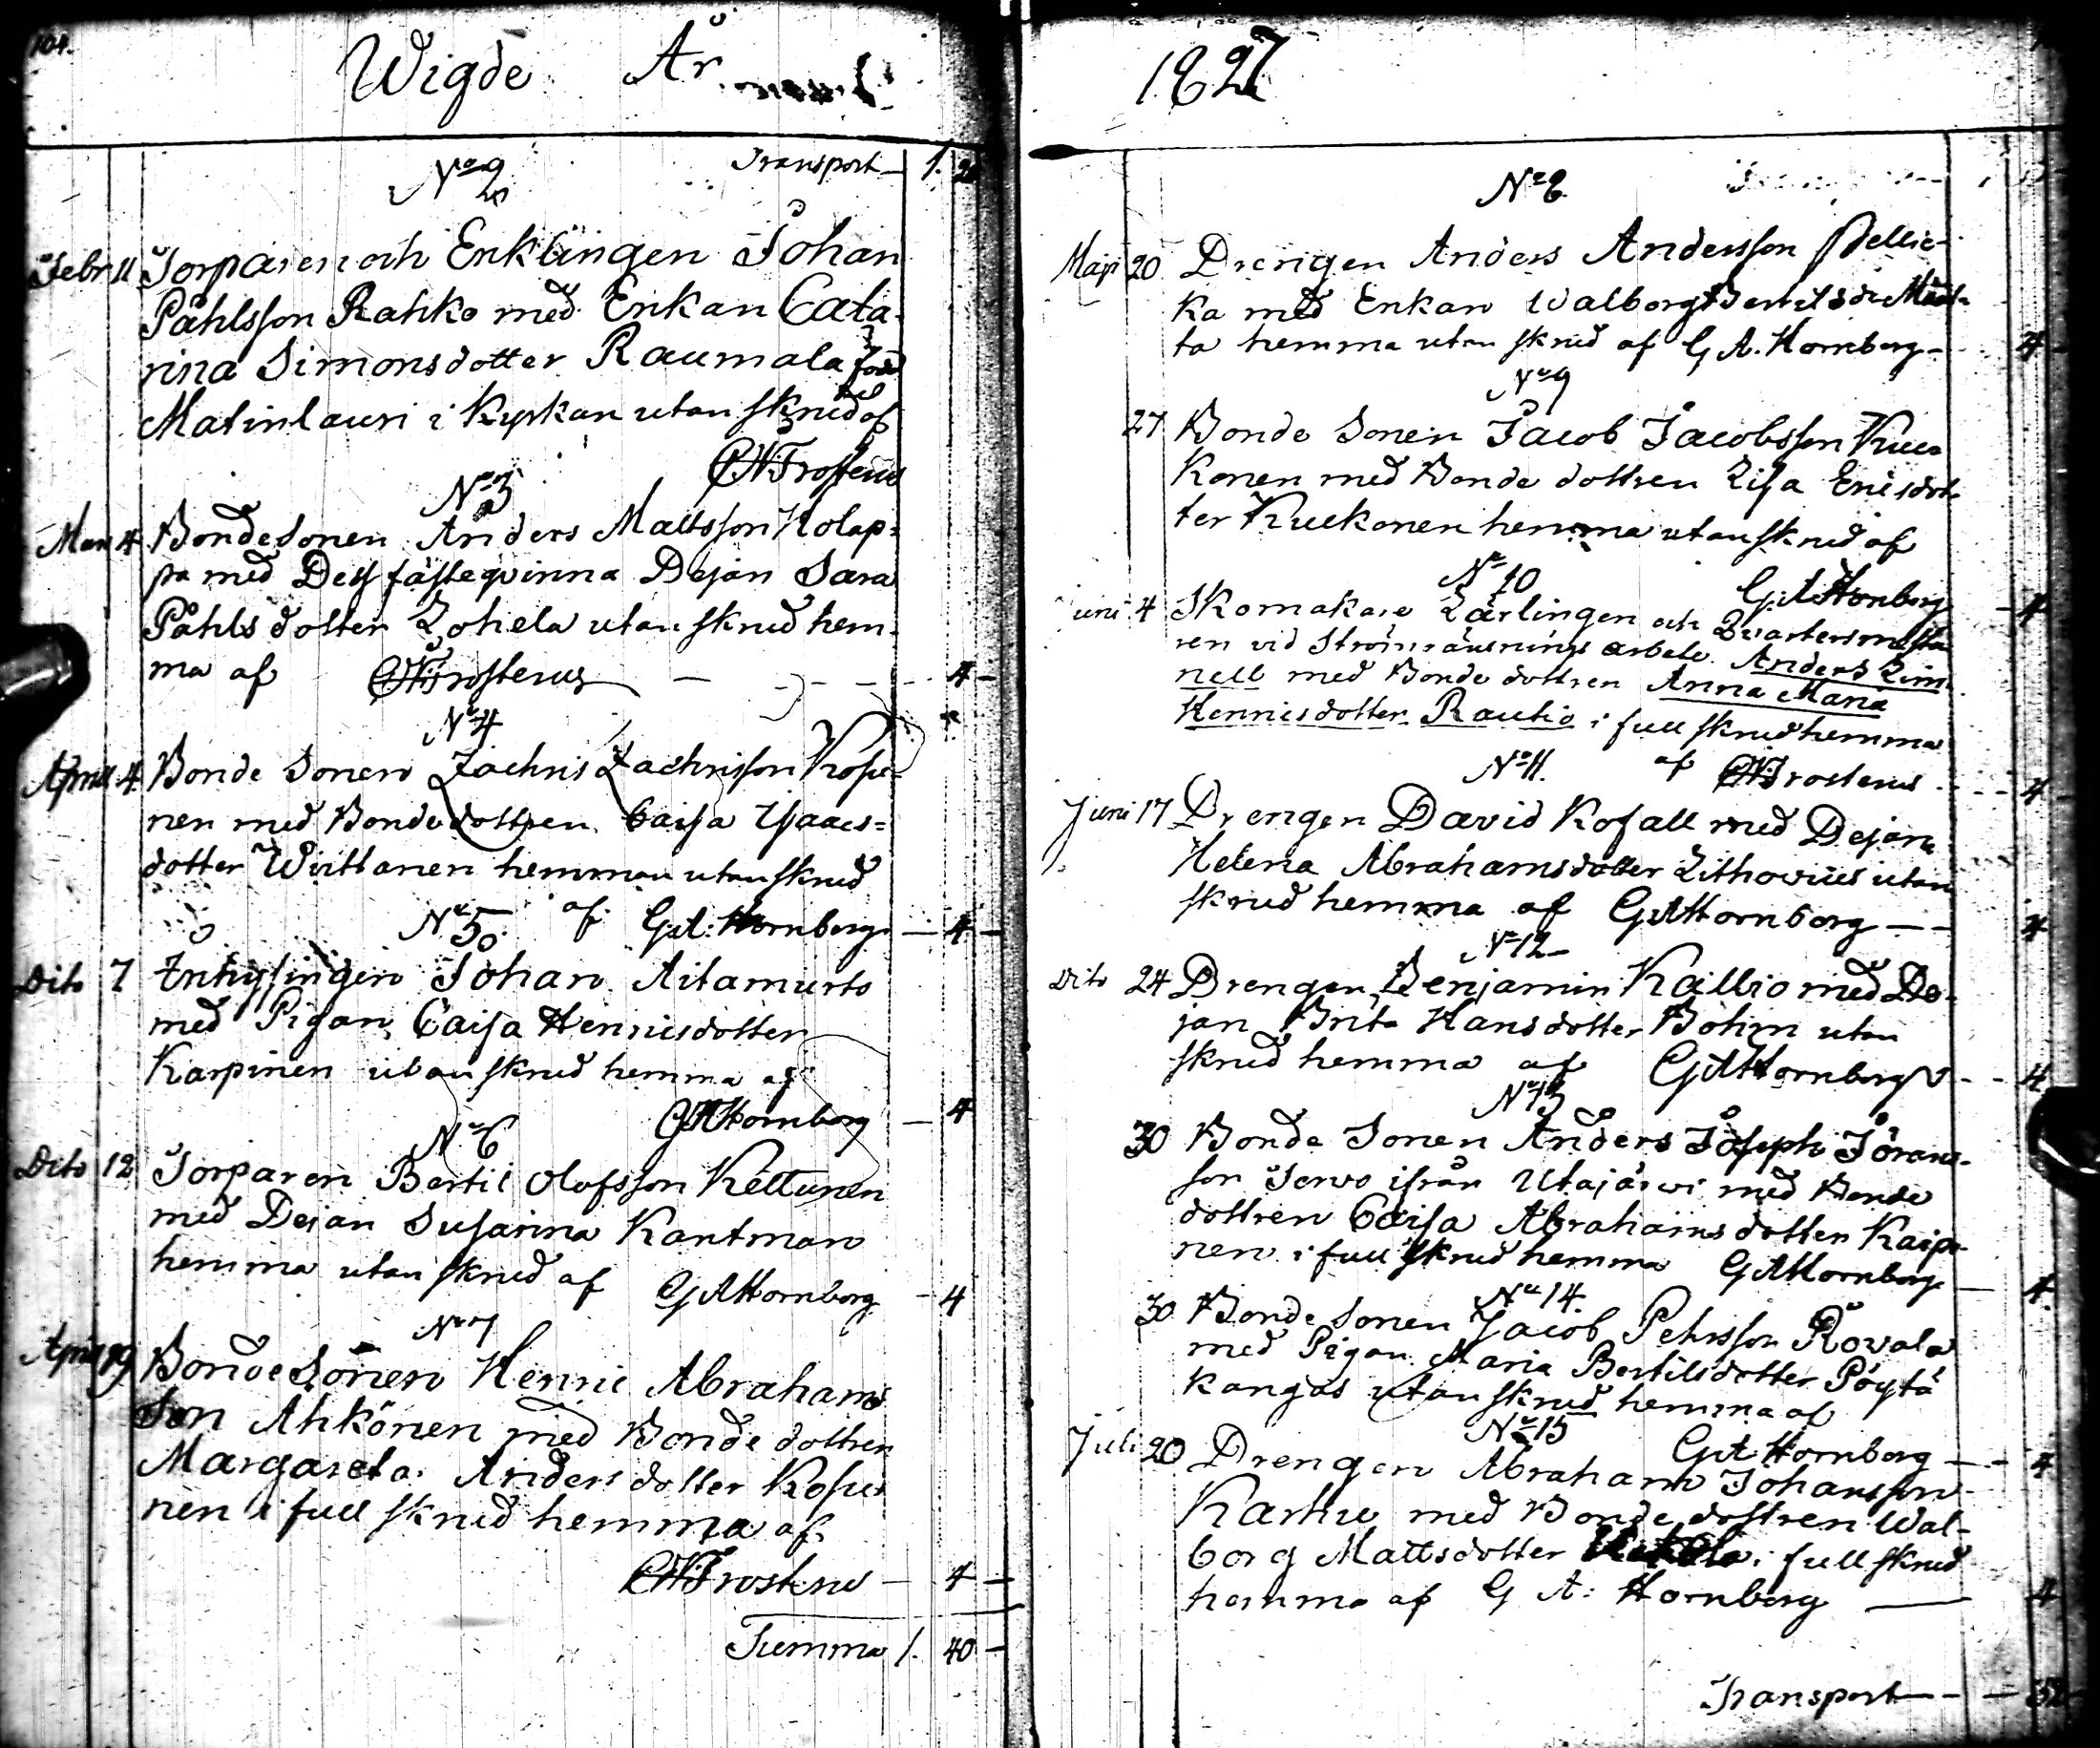 104.
Wigde År
1827
Transport 1. 20
No 2
Febr 11 Torparen och Enklingen Johan
Påhlsson Rahko med Enkan Cata-
rina Simonsdotter Raumala född
Matinlauri i Kyrkan utan skrud af
CNFrosterus
No 3
Mars 4 Bondesonen Anders Mattsson Holap-
pa med Dess fästeqvinna Dejan Sara
Påhls dotter Lohela utan skrud hem-
ma af CNFrosterus 4
No 4
Aprill 4. Bonde Sonen Zachris Zachrisson Kosu-
nen med Bonde dottren Caisa Isaacs=
dotter Wirttanen hemma utan skrud
af G. A. Hornborg 4
No 5
Dito 7 Inhysingen Johan Aitamurto
med Pigan Caisa Henricsdotter
Karpinen utan skrud hemma af
GAHornborg 4
No 6
Dito 12 Torparen Bertil Olofsson Kettunen
med Dejan Susanna Kantman
hemma utan skrud af GAHornborg 4
No 7
April 19 BondeSonen Henric Abrahams
Son Ahkonen med Bonde dottren
Margareta Andersdotter Kosu-
nen i full skrud hemma af
CNFrosterus 4
Summa 1. 40
No 8
Maji 20 Drengen Anders Andersson Pellic-
ka med Enkan Walborg Bertilsdr Määt-
ta hemma utan skrud af G. A. Hornborg 4
No 9
27 Bonde Sonen Jacob Jacobsson Kuc-
konen med Bonde dottren Lisa Ericsdot-
ter Kuckonen hemma utan skrud af
GAHornborg 4
No 10
Juni 4 Skomakare Lärlingen och Quartersmästa
ren vid Strömränsnings arbete Anders Lim-
nell med Bonde dottren Anna Maria
Henricsdotter Rautio i full skrud hemma
af CNFrosterus 4
No 11.
Juni 17 Drengen David Kofall med Dejan
Helena Abrahamsdotter Lithovius utan
skrud hemma af GAHornborg 4
No 12
Dito 24 Drengen Benjamin Kallio med De-
jan Brita Hansdotter Böhm utan
skrud hemma af GAHornborg 4
No 13
30 Bonde Sonen Anders Joseph Jörans-
son Servo ifrån Utajärvi med Bonde
dottren Caisa Abrahams dotter Kaipa-
nen i full skrud hemma GAHornborg 4.
No 14.
30 Bonde Sonen Jacob Pehrsson Rovala
med Pigan Maria Bertilsdotter Pöytä
kangas utan skrud hemma af
GAHornborg 4
No 15
Juli 20 Drengen Abraham Johansson
Karhu med Bonde dottren Wal-
borg Mattsdotter i full skrud
hemma af G A: Hornborg 4
Transport 32